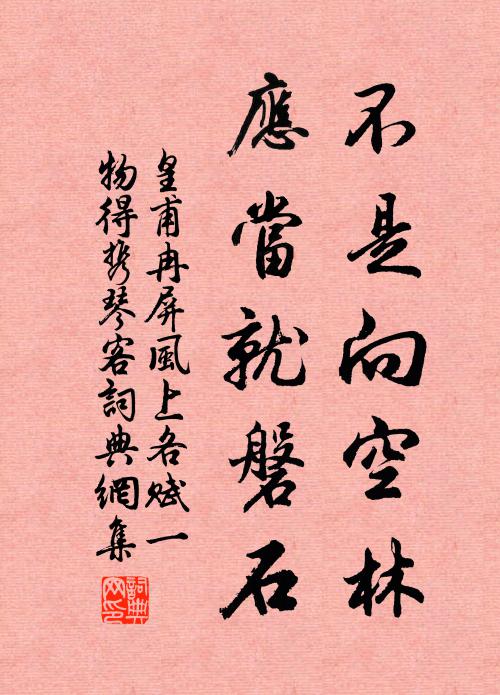 不是向空林
應當就磐石
皇甫冉屏風上各賦一
物得携琴客詞典網集
詞典網印